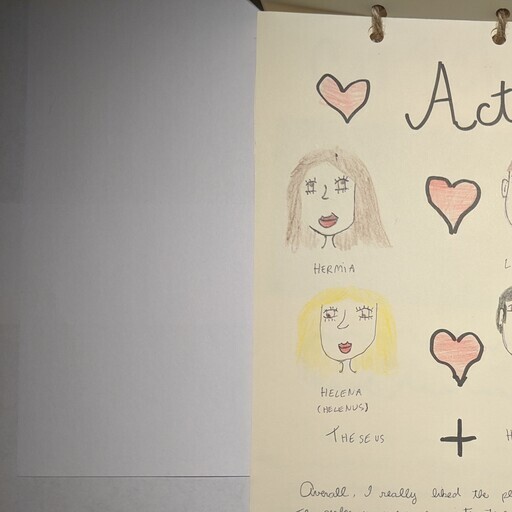 Act
HERMIA
L
HELENA
(HELENUS)
THESEUS + H
Overall, I really liked the pl